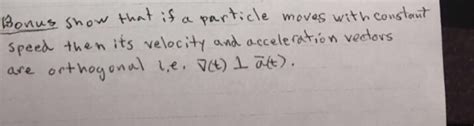 Bonus show that if a particle moves with constant
speed then its velocity and acceleration vectors
are orthogonal i.e. v̄(t) ⊥ ā(t).